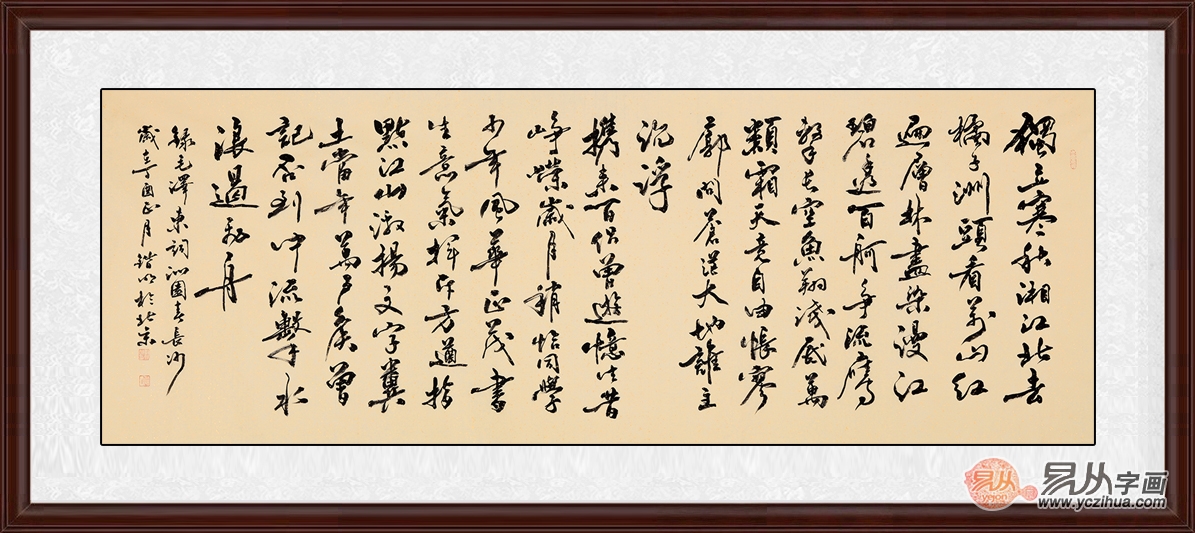 獨立寒秋湘江北去
橘子洲頭看萬山紅
遍層林盡染漫江
碧透百舸爭流鷹
擊長空魚翔淺底萬
類霜天竞自由悵寥
廓問蒼茫大地誰主
沉浮
携来百侣曾遊憶往昔
崢嶸歲月稠恰同學
少年風華正茂書
生意氣揮斥方遒指
點江山激揚文字糞
土當年萬户侯曾
記否到中流擊水
浪遏飛舟
録毛澤東詞沁園春長沙
歲酉正月於北京
易从字画
www.yczihua.com